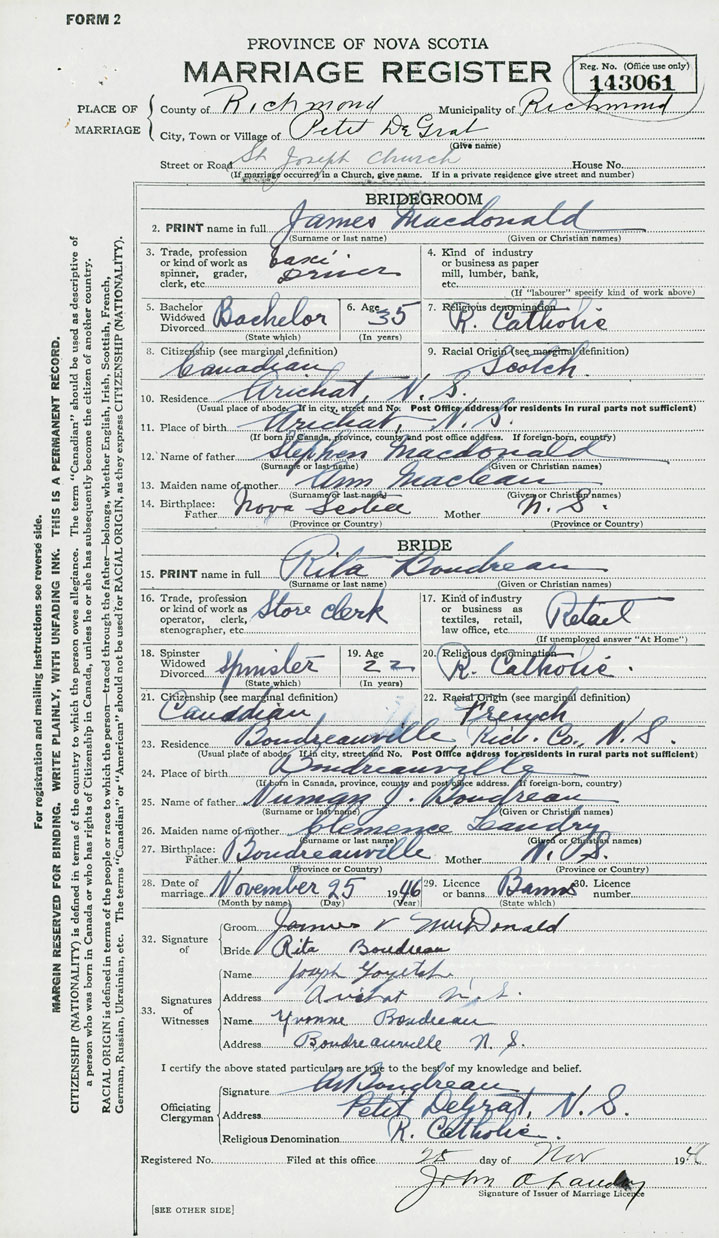 FORM 2
PROVINCE OF NOVA SCOTIA
MARRIAGE REGISTER
Reg. No. (Office use only)
143061
PLACE OF MARRIAGE
County of Richmond Municipality of Richmond
City, Town or Village of Petit DeGrat
(Give name)
Street or Road St Joseph Church House No.
(If marriage occurred in a Church, give name. If in a private residence give street and number)
BRIDEGROOM
2. PRINT name in full James Macdonald
(Surname or last name) (Given or Christian names)
3. Trade, profession or kind of work as spinner, grader, clerk, etc. Taxi Driver
4. Kind of industry or business as paper mill, lumber, bank, etc.
(If "labourer" specify kind of work above)
5. Bachelor Widowed Divorced Bachelor
(State which)
6. Age 35
(In years)
7. Religious denomination R. Catholic
8. Citizenship (see marginal definition) Canadian
9. Racial Origin (see marginal definition) Scotch.
10. Residence Arichat, N. S.
(Usual place of abode. If in city, street and No. Post Office address for residents in rural parts not sufficient)
11. Place of birth Arichat, N. S.
(If born in Canada, province, county and post office address. If foreign-born, country)
12. Name of father Stephen Macdonald
(Surname or last name) (Given or Christian names)
13. Maiden name of mother Ann Maclean
(Surname or last name) (Given or Christian names)
14. Birthplace: Father Nova Scotia Mother N. S.
(Province or Country) (Province or Country)
BRIDE
15. PRINT name in full Rita Boudreau
(Surname or last name) (Given or Christian names)
16. Trade, profession or kind of work as operator, clerk, stenographer, etc. Store clerk
17. Kind of industry or business as textiles, retail, law office, etc. Retail
(If unemployed answer "At Home")
18. Spinster Widowed Divorced Spinster
(State which)
19. Age 22
(In years)
20. Religious denomination R. Catholic.
21. Citizenship (see marginal definition) Canadian
22. Racial Origin (see marginal definition) French
23. Residence Boudreauville Rich. Co., N. S.
(Usual place of abode. If in city, street and No. Post Office address for residents in rural parts not sufficient)
24. Place of birth Boudreauville
(If born in Canada, province, county and post office address. If foreign-born, country)
25. Name of father J. Boudreau
(Surname or last name) (Given or Christian names)
26. Maiden name of mother Clemence Landry
(Surname or last name) (Given or Christian names)
27. Birthplace: Father Boudreauville Mother N. S.
(Province or Country) (Province or Country)
28. Date of marriage November 25 1946
(Month by name) (Day) (Year)
29. Licence or banns Banns
(State which)
30. Licence number
32. Signature of
Groom James V MacDonald
Bride Rita Boudreau
33. Signatures of Witnesses
Name Joseph
Address Arichat N. S.
Name Yvonne Boudreau
Address Boudreauville N. S.
I certify the above stated particulars are true to the best of my knowledge and belief.
Officiating Clergyman
Signature Boudreau
Address Petit Degrat, N. S.
Religious Denomination R. Catholic.
Registered No. Filed at this office 25 day of Nov 194
John A Landry
Signature of Issuer of Marriage Licence
[SEE OTHER SIDE]
For registration and mailing instructions see reverse side.
MARGIN RESERVED FOR BINDING. WRITE PLAINLY, WITH UNFADING INK. THIS IS A PERMANENT RECORD.
CITIZENSHIP (NATIONALITY) is defined in terms of the country to which the person owes allegiance. The term "Canadian" should be used as descriptive of
a person who was born in Canada or who has rights of Citizenship in Canada, unless he or she has subsequently become the citizen of another country.
RACIAL ORIGIN is defined in terms of the people or race to which the person—traced through the father—belongs, whether English, Irish, Scottish, French,
German, Russian, Ukrainian, etc. The terms "Canadian" or "American" should not be used for RACIAL ORIGIN, as they express CITIZENSHIP (NATIONALITY).